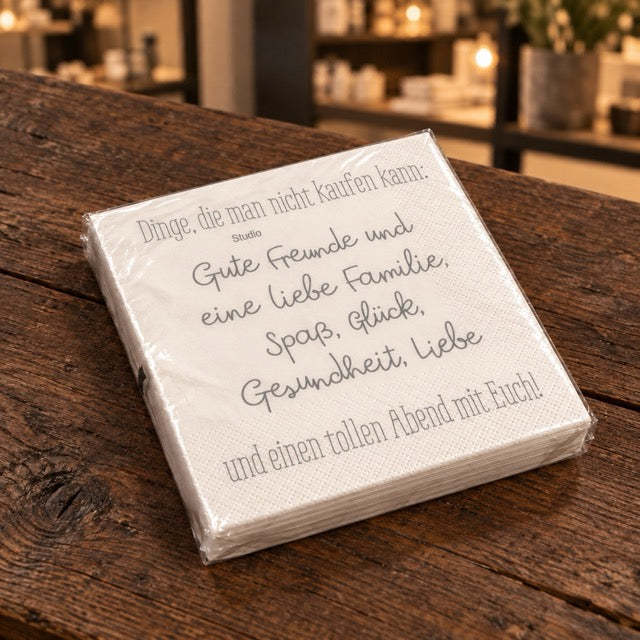 Dinge, die man nicht kaufen kann:
Studio
Gute Freunde und
eine liebe Familie,
Spaß, Glück,
Gesundheit, Liebe
und einen tollen Abend mit Euch!